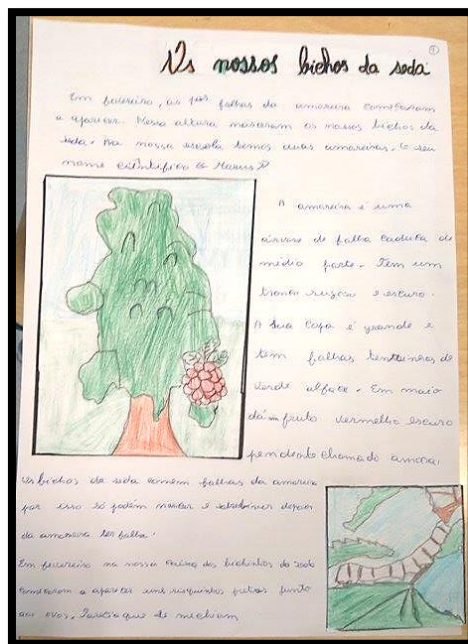 1
Os nossos bichos da seda
Em fevereiro, as folhas da amoreira começaram
a aparecer. Nessa altura nasceram os nossos bichos da
seda. Na nossa escola temos duas amoreiras. O seu
nome científico é Morus
A amoreira é uma
árvore de folha caduca de
médio porte. Tem um
tronco rugoso e escuro.
A sua copa é grande e
tem folhas de
verde alface. Em maio
dá um fruto vermelho escuro
pendente chamado amora.
Os bichos da seda comem folhas da amoreira
por isso só podem nascer e sobreviver depois
da amoreira ter folha.
Em fevereiro na nossa caixa dos bichinhos da seda
começaram a aparecer uns risquinhos pretos junto
aos ovos. Parecia que se mexiam